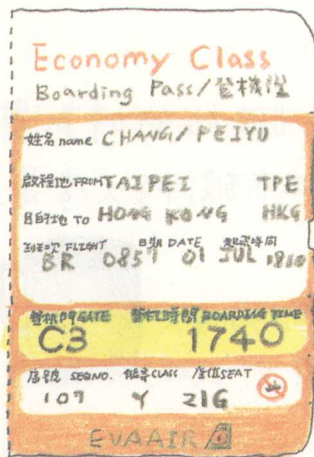 Economy Class
Boarding Pass/登機證
姓名 name CHANG/PEIYU
啟程地 FROM TAIPEI TPE
目的地 TO HONG KONG HKG
班次 FLIGHT 日期 DATE 起飛時間
BR 0857 01 JUL 1810
登機門 GATE 登機時間 BOARDING TIME
C3 1740
序號 SEQNO. 艙等 CLASS 座位 SEAT
107 Y 21G
EVAAIR